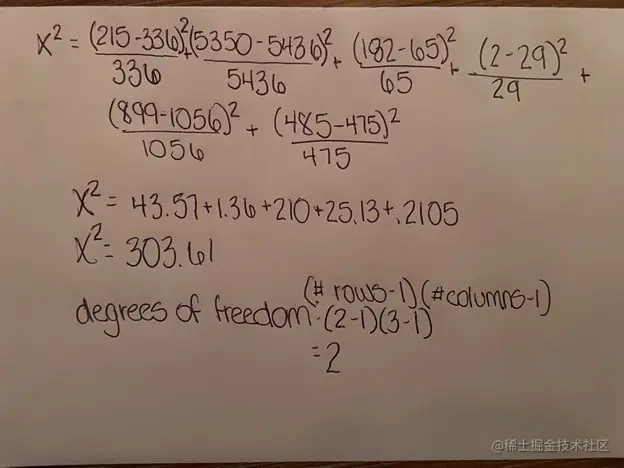 X² = (215-336)²/336 + (5350-5436)²/5436 + (182-65)²/65 + (2-29)²/29 +
(899-1056)²/1056 + (485-475)²/475
X² = 43.57+1.36+210+25.13+.2105
X² = 303.61
(# rows-1)(#columns-1)
degrees of freedom: (2-1)(3-1)
=2
@稀土掘金技术社区